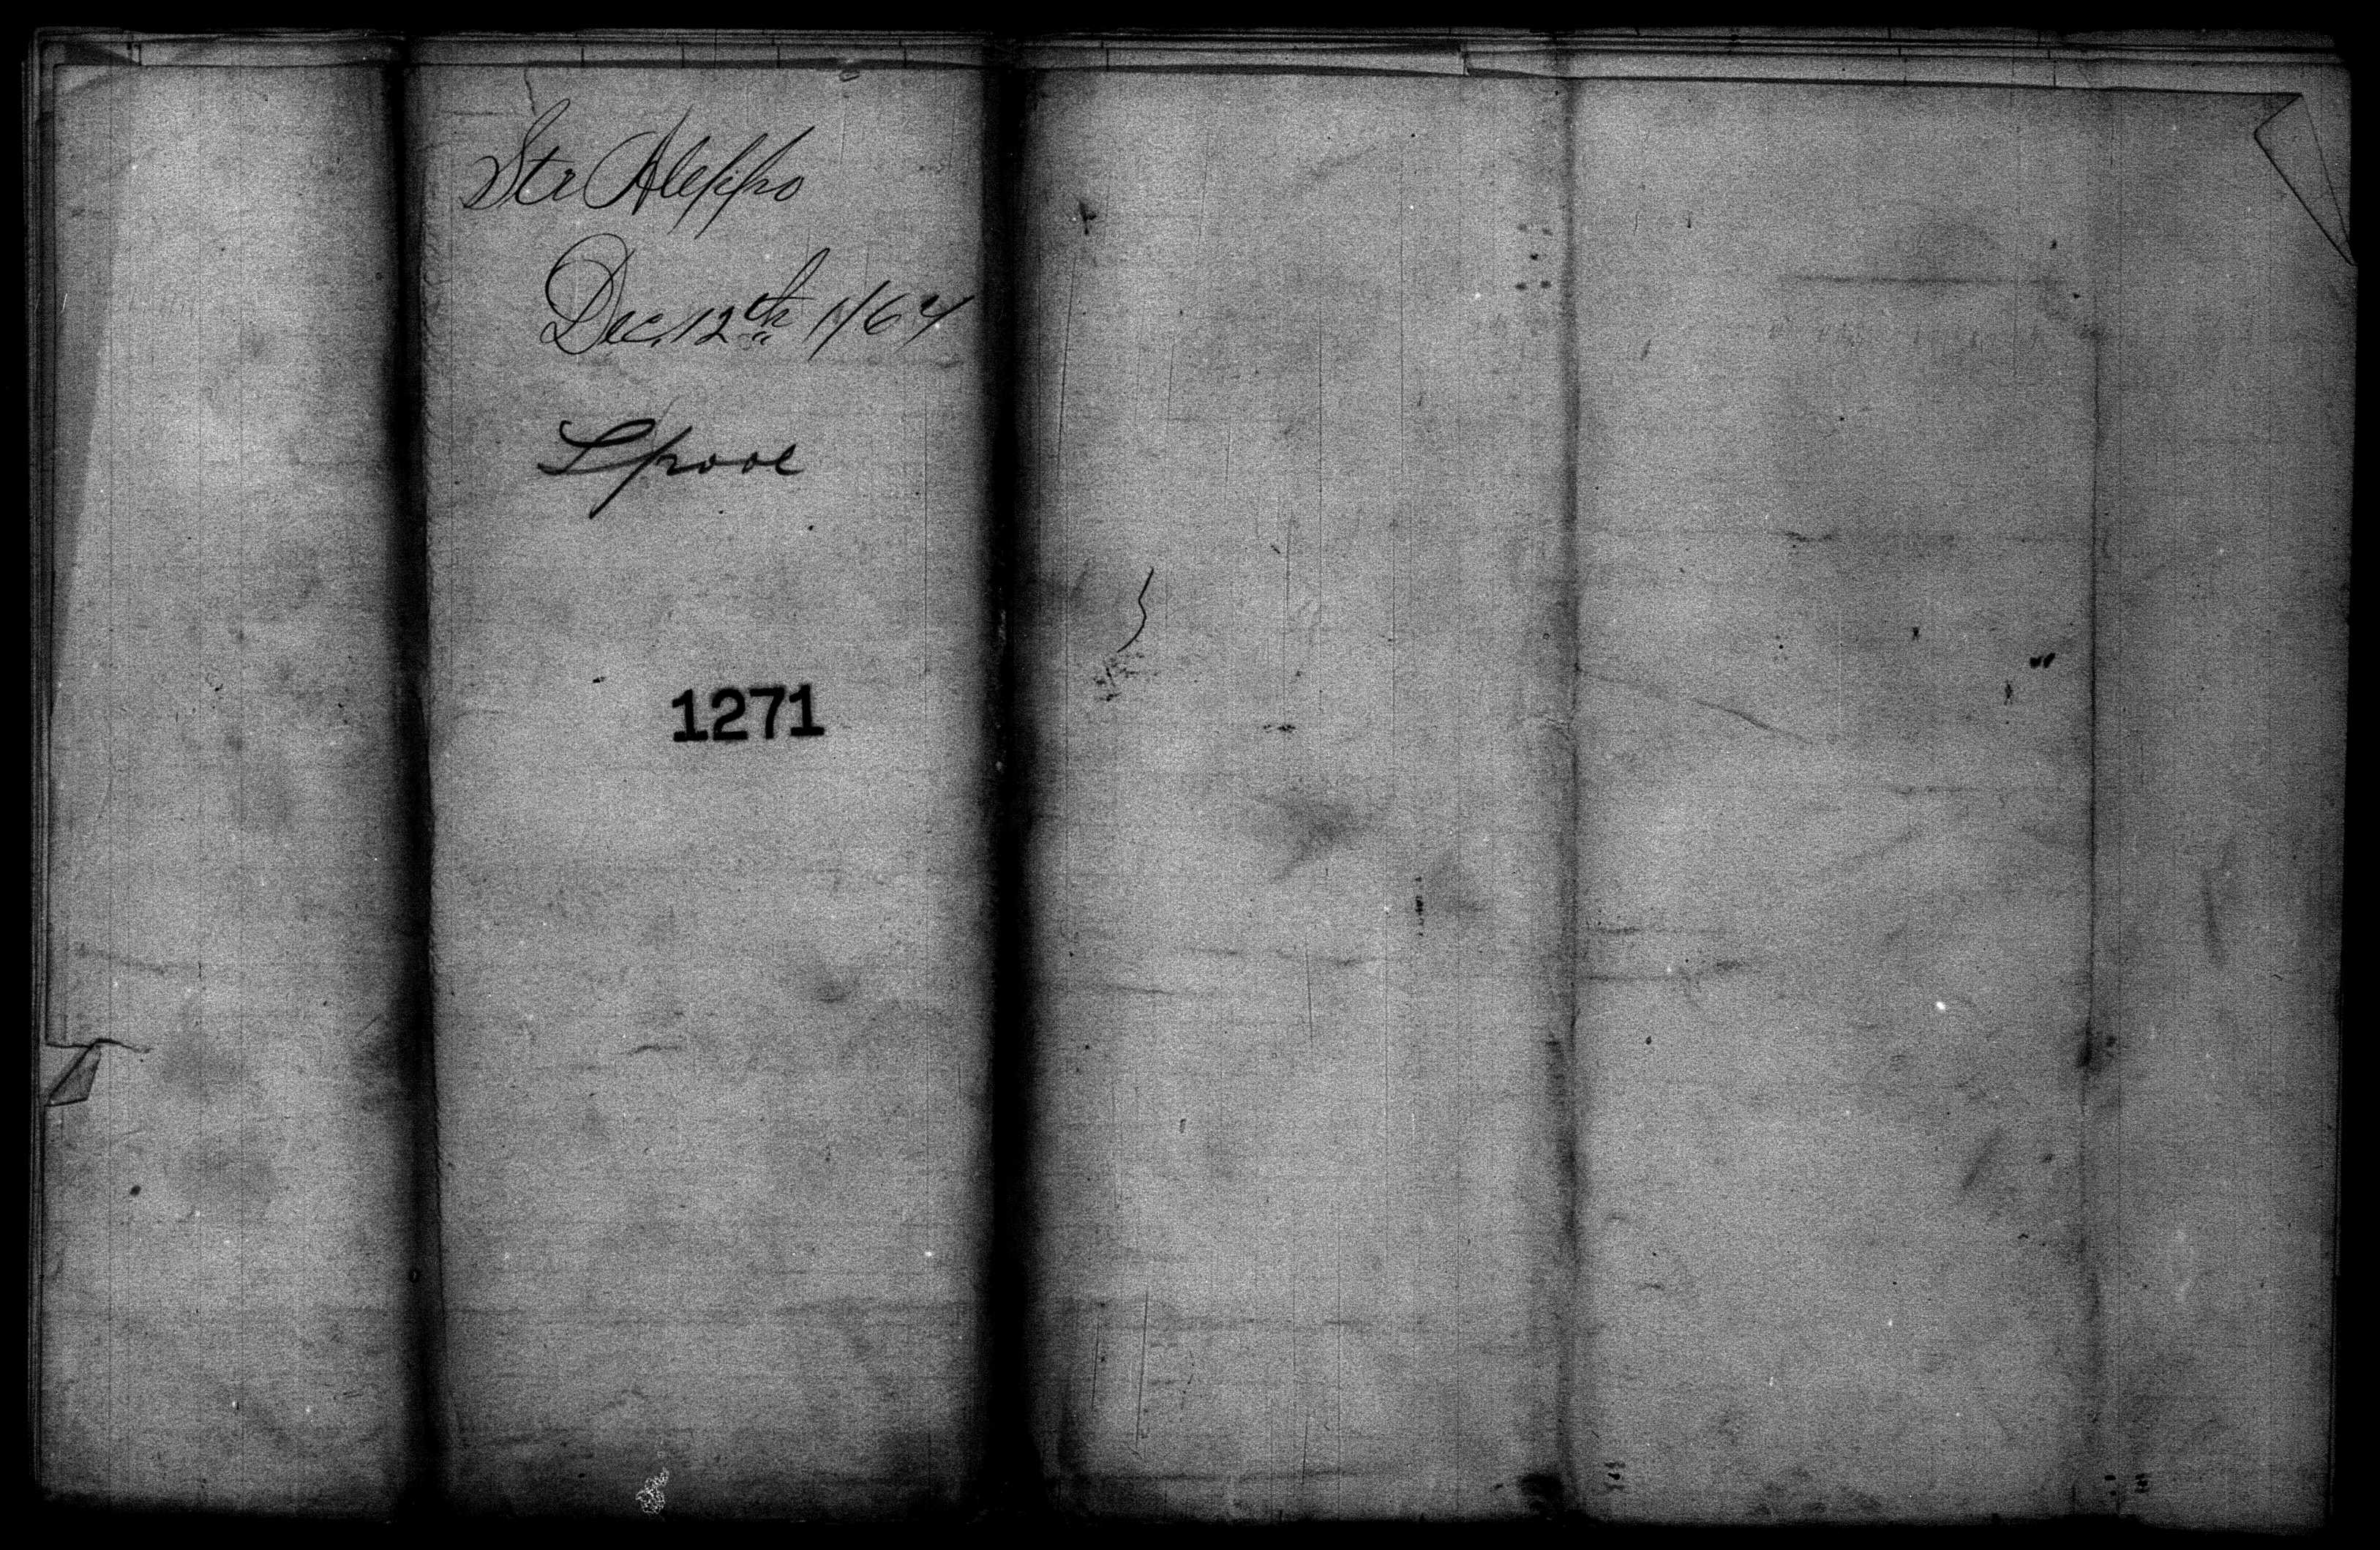 Str Aleppo
Dec. 12th 1/64
Lpool
1271